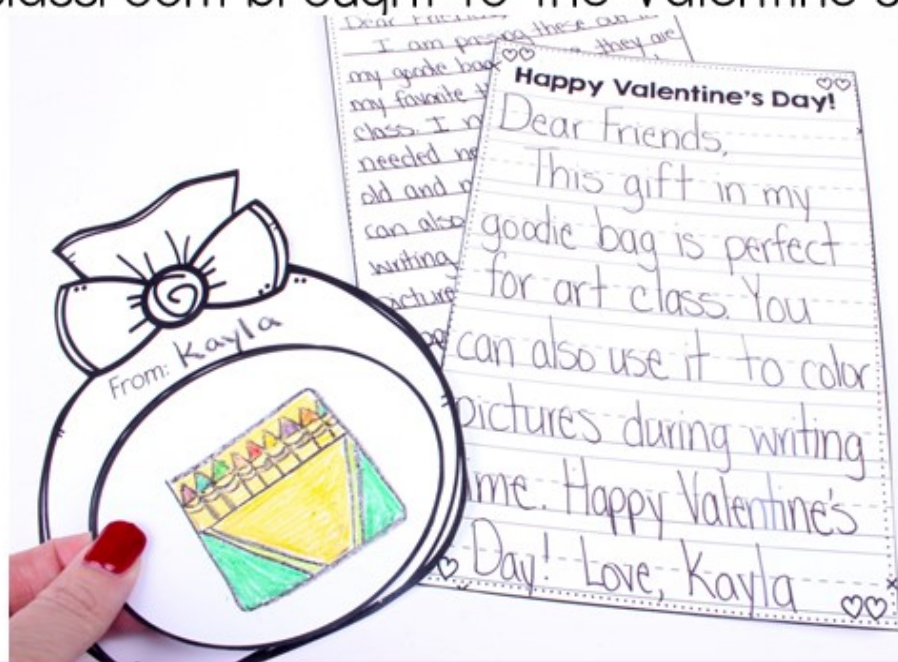 brought to the Valentine's
Dear Friends,
I am passing these out in
my goodie bag they are
my favorite
class. I
needed
old and
can also
writing
Happy Valentine's Day!
Dear Friends,
This gift in my
goodie bag is perfect
for art class. You
can also use it to color
pictures during writing
ime. Happy Valentine's
Day! Love, Kayla
From: Kayla